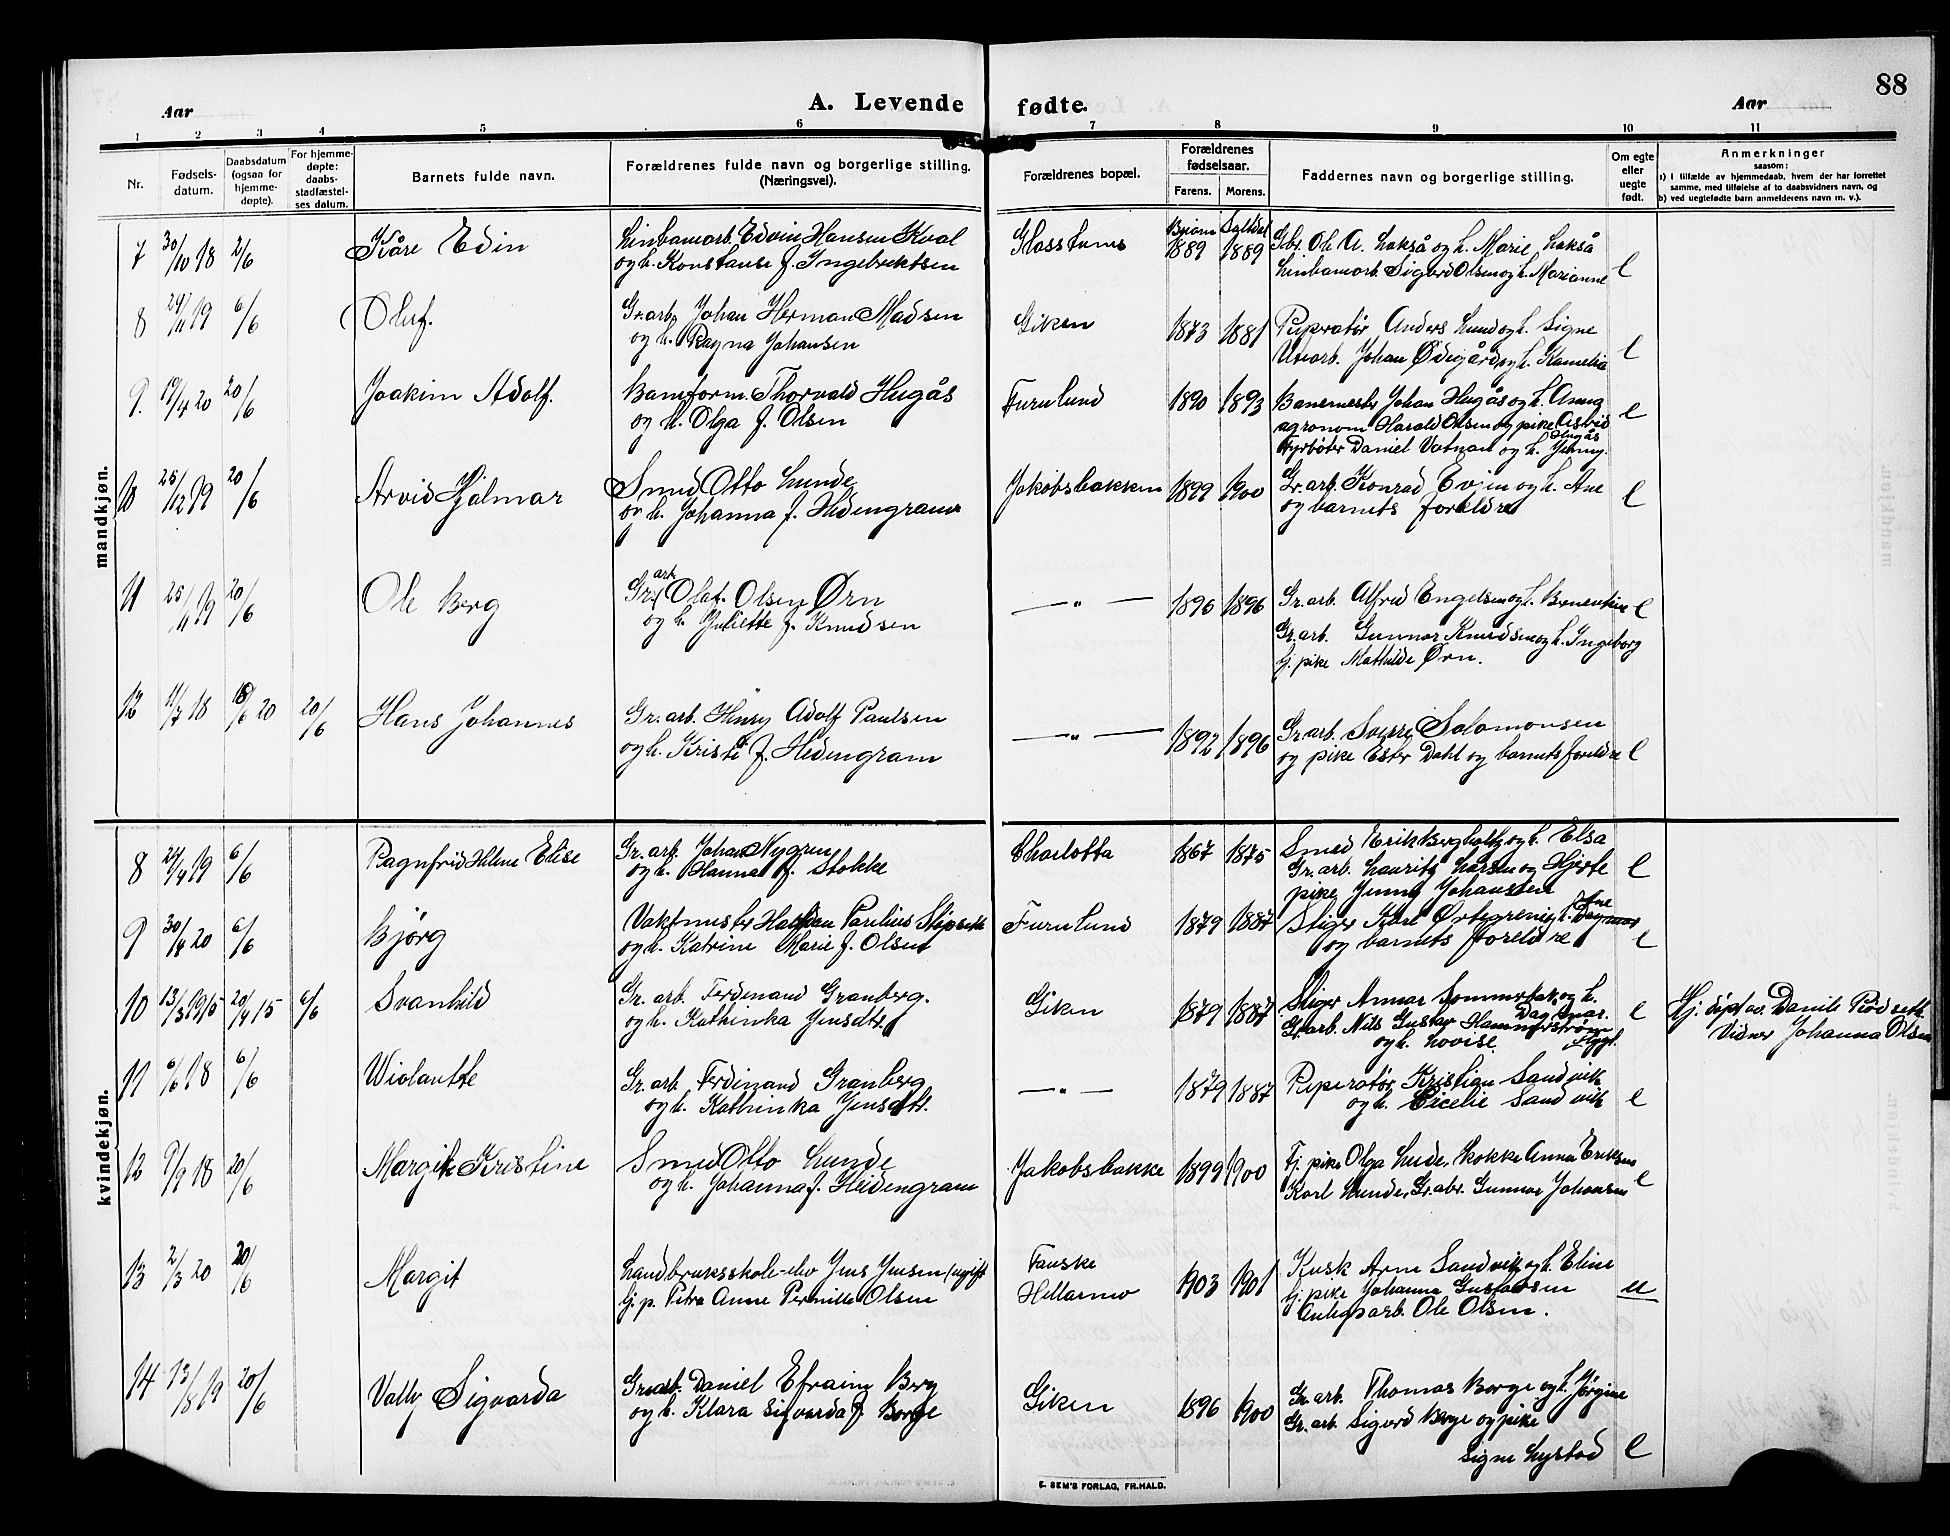 88
Aar
A. Levende fødte.
Aar
1 2 3 4 5 6 7 8 9 10 11
Nr.
Fødsels-
datum.
Daabsdatum
(ogsaa for
hjemme-
døpte).
For hjemme-
døpte:
daabs-
stadfæstel-
ses datum.
Barnets fulde navn.
Forældrenes fulde navn og borgerlige stilling.
(Næringsvei).
Forældrenes bopæl.
Forældrenes
fødselsaar.
Farens. Morens.
Faddernes navn og borgerlige stilling.
Om egte
eller
uegte
født.
Anmerkninger
saasom:
a) i tilfælde av hjemmedaab, hvem der har forrettet
samme, med tilføielse af to daabsvidners navn, og
b) ved uegtefødte barn anmelderens navn m. v.).
mandkjøn.
7 30/10 18 2/6 Kåre Edin
Linbamarb. Edvin Hansen Kval
og h. Konstanse f. Ingebriktsen
Glasstunes
1889 1889
Gbr. Ole A. Lakså og h. Marie Lakså
Linbanarb. Sigurd Olsen og h. Marianne
e
8 29/11 19 6/6 Oluf.
Gr. arb. Johan Herman Madsen
og h. Ragna Johansen
Giken
1873 1881
Reparatør Anders Lund og h. Signe
Utearb. Johan Ødegård og h. Kamelia
e
9. 19/4 20 20/6 Joakim Adolf.
Banform. Thorvald Hugås
og h. Olga f. Olsen
Furulund
1890 1893
Banemester Johan Hugås og h. Anna
agronom Harald Olsen og pike Asbid
Hugås
Fyrbøter Daniel Vatnan og h. Jenny.
e
10 25/12 19 20/6 Arvid Hjalmar
Smed Otto Lunde
og h. Johanna f. Hedengram
Jakobsbakken
1899 1900
Gr. arb. Konrad Evjen og h. Ane
og barnets foreldre
e
11 25/11 19 20/6 Ole Berg
Gr. arb. Olaf Olsen Ørn
og h. Juliette f. Knudsen
— " —
1890 1896
Gr. arb. Alfred Engelsen og h. Benentine
Gr. arb. Gunnar Knudsen og h. Ingeborg
tj. pike Mathilde Ørn.
e
12 11/7 18 18/6 20 20/6 Hans Johannes
Gr. arb. Henry Adolf Paulsen
og h. Kristi f. Hedengram
— " —
1892 1896
Gr. arb. Sverre Salomonsen
og pike Ester Dahl og barnets foreldre
e
kvindekjøn.
8 21/4 19 6/6 Ragnfrid Helene Elise
Gr. arb. Johan Nygren
og h. Hanna f. Stokke
Charlotta
1867 1875
Smed Erik Bygholt og h. Elsa
Gr. arb. Lauritz Larsen og Hjerte
pike Jenny Johansen
e
9 30/4 20 6/6 Bjørg
Vaktmester Halfdan Parelius Slipseth
og h. Katrine Marie f. Olsen
Furulund
1879 1887
Stiger Karl Ørtegren og h. Ane Dagmar
og barnets foreldre
e
10 13/3 1915 20/4 15 6/6 Svanhild
Gr. arb. Ferdinand Granberg.
og h. Kathinka Jensdtr.
Giken
1879 1887
Stiger Annar Sommerbak og h.
Dagmar.
Gr. arb. Nils Gustav Hammerstrøm
og h. Lovise.
e
Hj. døpt av Danile Rødseth
Vidner Johanna Olsen
11 6/6 18 6/6 Wiolantte
Gr. arb. Ferdinand Granberg
og h. Kathinka Jensdtr.
— " —
1879 1887
Reparatør Kristian Sandvik
og h. Cicelie Sandvik
e
12 9/9 18 20/6 Margith Kristine
Smed Otto Lunde
og h. Johanna f. Heidengram
Jakobsbakke
1899 1900
Tj. pike Olga Lude, kokke Anna Eriksen
Karl Lunde, Gr. abr. Gunnar Johansen
e
13 2/3 20 20/6 Margit
Landbruksskole-elev Jens Jensen (ugift
tj. p. Petra Anne Pernille Olsen
Fauske
Hellarmo
1903 1901
Kusk Arne Sandvik og h. Eline
tj. pike Johanna Gustavsen
Anlegsarb. Ole Olsen.
u
14 13/8 19 20/6 Vally Sigvarda
Gruarb. Daniel Efraim Berg
og h. Klara Sigvarda f. Borge
Giken
1896 1900
Gr. arb. Thomas Borge og h. Jørgine
Gr. arb. Sigurd Borge og pike
Signe Lystad
e
E. SEM'S FORLAG, FR.HALD.